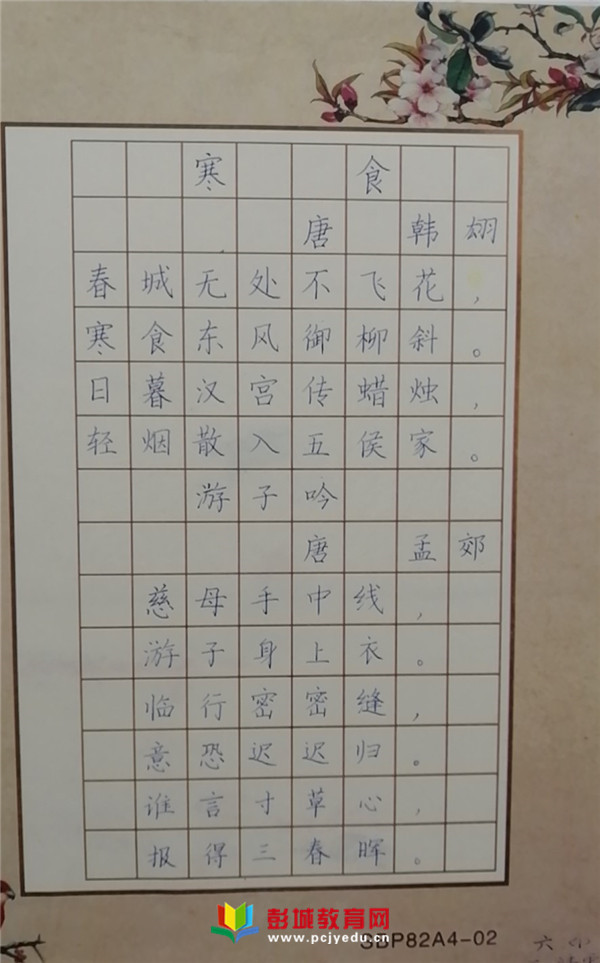 寒食
唐 韩翃
春城无处不飞花，
寒食东风御柳斜。
日暮汉宫传蜡烛，
轻烟散入五侯家。
游子吟
唐 孟郊
慈母手中线，
游子身上衣。
临行密密缝，
意恐迟迟归。
谁言寸草心，
报得三春晖。
彭城教育网
www.pcjyedu.cn
SBP82A4-02
六